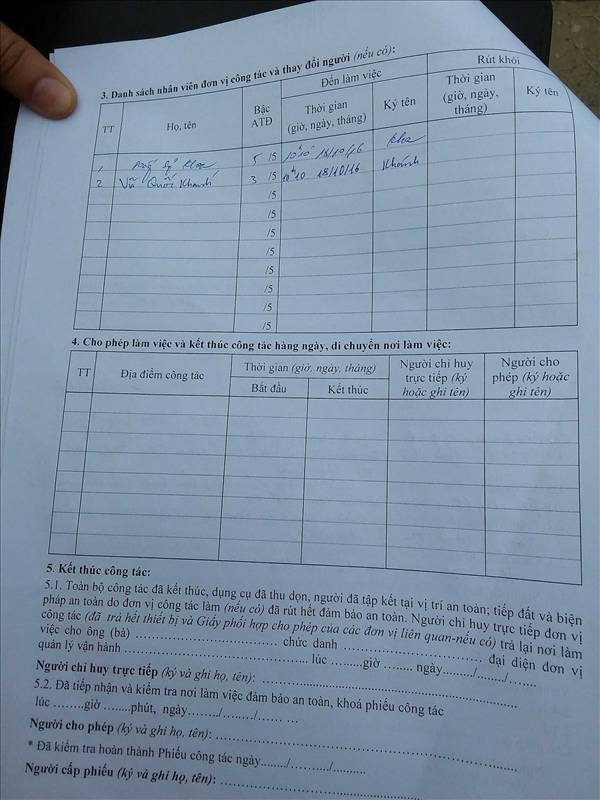 3. Danh sách nhân viên đơn vị công tác và thay đổi người (nếu có):
TT
Họ, tên
Bậc
ATĐ
Đến làm việc
Rút khỏi
Thời gian
(giờ, ngày, tháng)
Ký tên
Thời gian
(giờ, ngày,
tháng)
Ký tên
1 Khoa 5 /5 10h10 18/10/16 Khoa
2 Vũ Quốc Khánh 3 /5 10h10 18/10/16 Khánh
/5
/5
/5
/5
/5
/5
/5
/5
4. Cho phép làm việc và kết thúc công tác hàng ngày, di chuyển nơi làm việc:
TT
Địa điểm công tác
Thời gian (giờ, ngày, tháng)
Bắt đầu
Kết thúc
Người chỉ huy
trực tiếp (ký
hoặc ghi tên)
Người cho
phép (ký hoặc
ghi tên)
5. Kết thúc công tác:
5.1. Toàn bộ công tác đã kết thúc, dụng cụ đã thu dọn, người đã tập kết tại vị trí an toàn; tiếp đất và biện
pháp an toàn do đơn vị công tác làm (nếu có) đã rút hết đảm bảo an toàn. Người chỉ huy trực tiếp đơn vị
công tác (đã trả hết thiết bị và Giấy phối hợp cho phép của các đơn vị liên quan-nếu có) trả lại nơi làm
việc cho ông (bà) ........................ chức danh ........................ đại diện đơn vị
quản lý vận hành ........................ lúc ......giờ ........ ngày......../......../........
Người chỉ huy trực tiếp (ký và ghi họ, tên): ........................
5.2. Đã tiếp nhận và kiểm tra nơi làm việc đảm bảo an toàn, khoá phiếu công tác
lúc ........giờ ........phút, ngày......../......../........ ...
Người cho phép (ký và ghi họ, tên): ........................
* Đã kiểm tra hoàn thành Phiếu công tác ngày......../........../..........
Người cấp phiếu (ký và ghi họ, tên): ........................